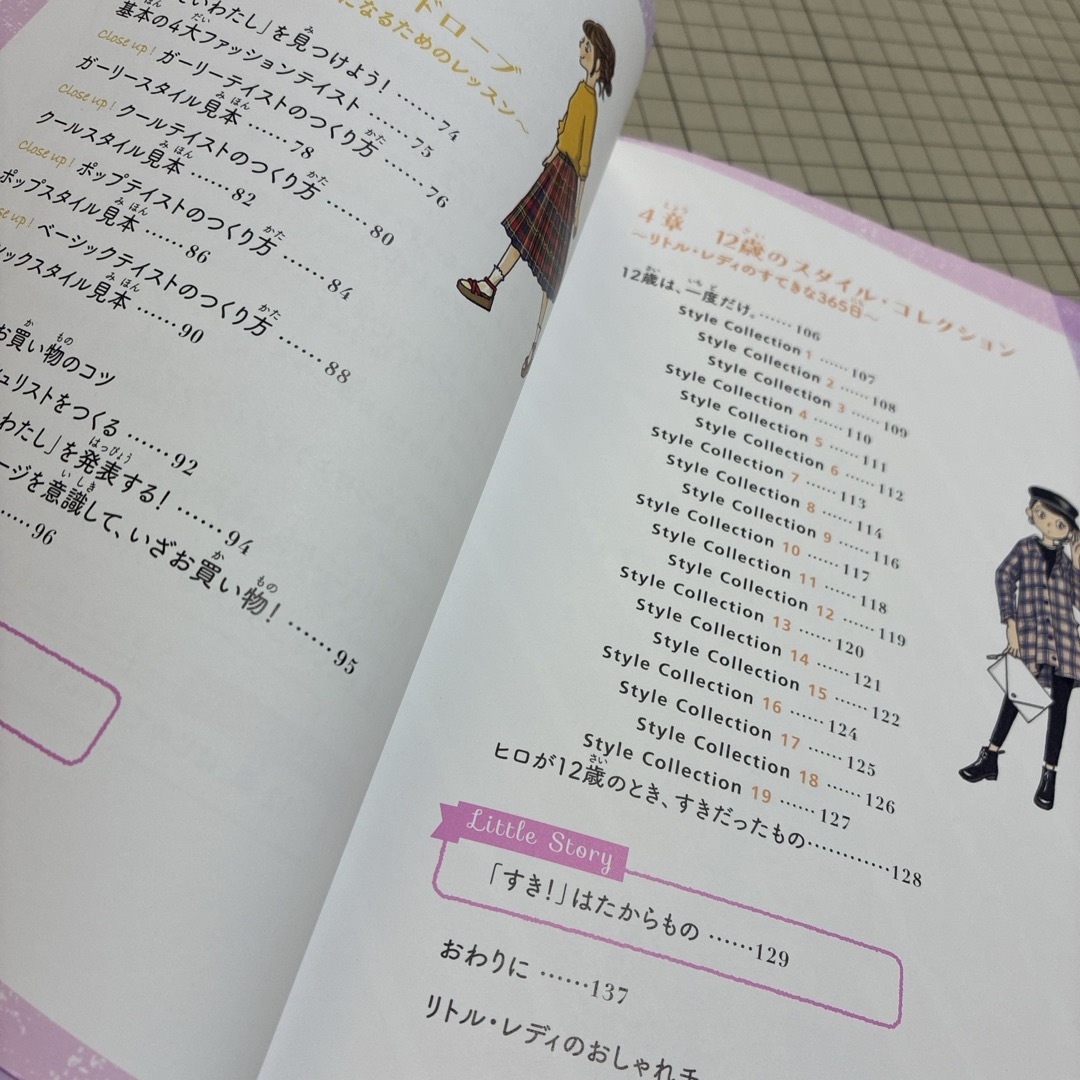 ドローブ
になるためのレッスン〜
いわたし」を見つけよう！ ……74
基本の4大ファッションテイスト ……75
close up! ガーリーテイストのつくり方 ……76
ガーリースタイル見本 ……78
close up! クールテイストのつくり方 ……80
クールスタイル見本 ……82
close up! ポップテイストのつくり方 ……84
ポップスタイル見本 ……86
up! ベーシックテイストのつくり方 ……88
ックスタイル見本 ……90
お買い物のコツ
ュリストをつくる ……92
わたし」を発表する！ ……94
ージを意識して、いざお買い物！ ……95
……96
4章 12歳のスタイル・コレクション
〜リトル・レディのすてきな365日〜
12歳は、一度だけ。……106
Style Collection 1 ……107
Style Collection 2 ……108
Style Collection 3 ……109
Style Collection 4 ……110
Style Collection 5 ……111
Style Collection 6 ……112
Style Collection 7 ……113
Style Collection 8 ……114
Style Collection 9 ……116
Style Collection 10 ……117
Style Collection 11 ……118
Style Collection 12 ……119
Style Collection 13 ……120
Style Collection 14 ……121
Style Collection 15 ……122
Style Collection 16 ……124
Style Collection 17 ……125
Style Collection 18 ……126
Style Collection 19 ……127
ヒロが12歳のとき、すきだったもの…………128
Little Story
「すき！」はたからもの ……129
おわりに ……137
リトル・レディのおしゃれ